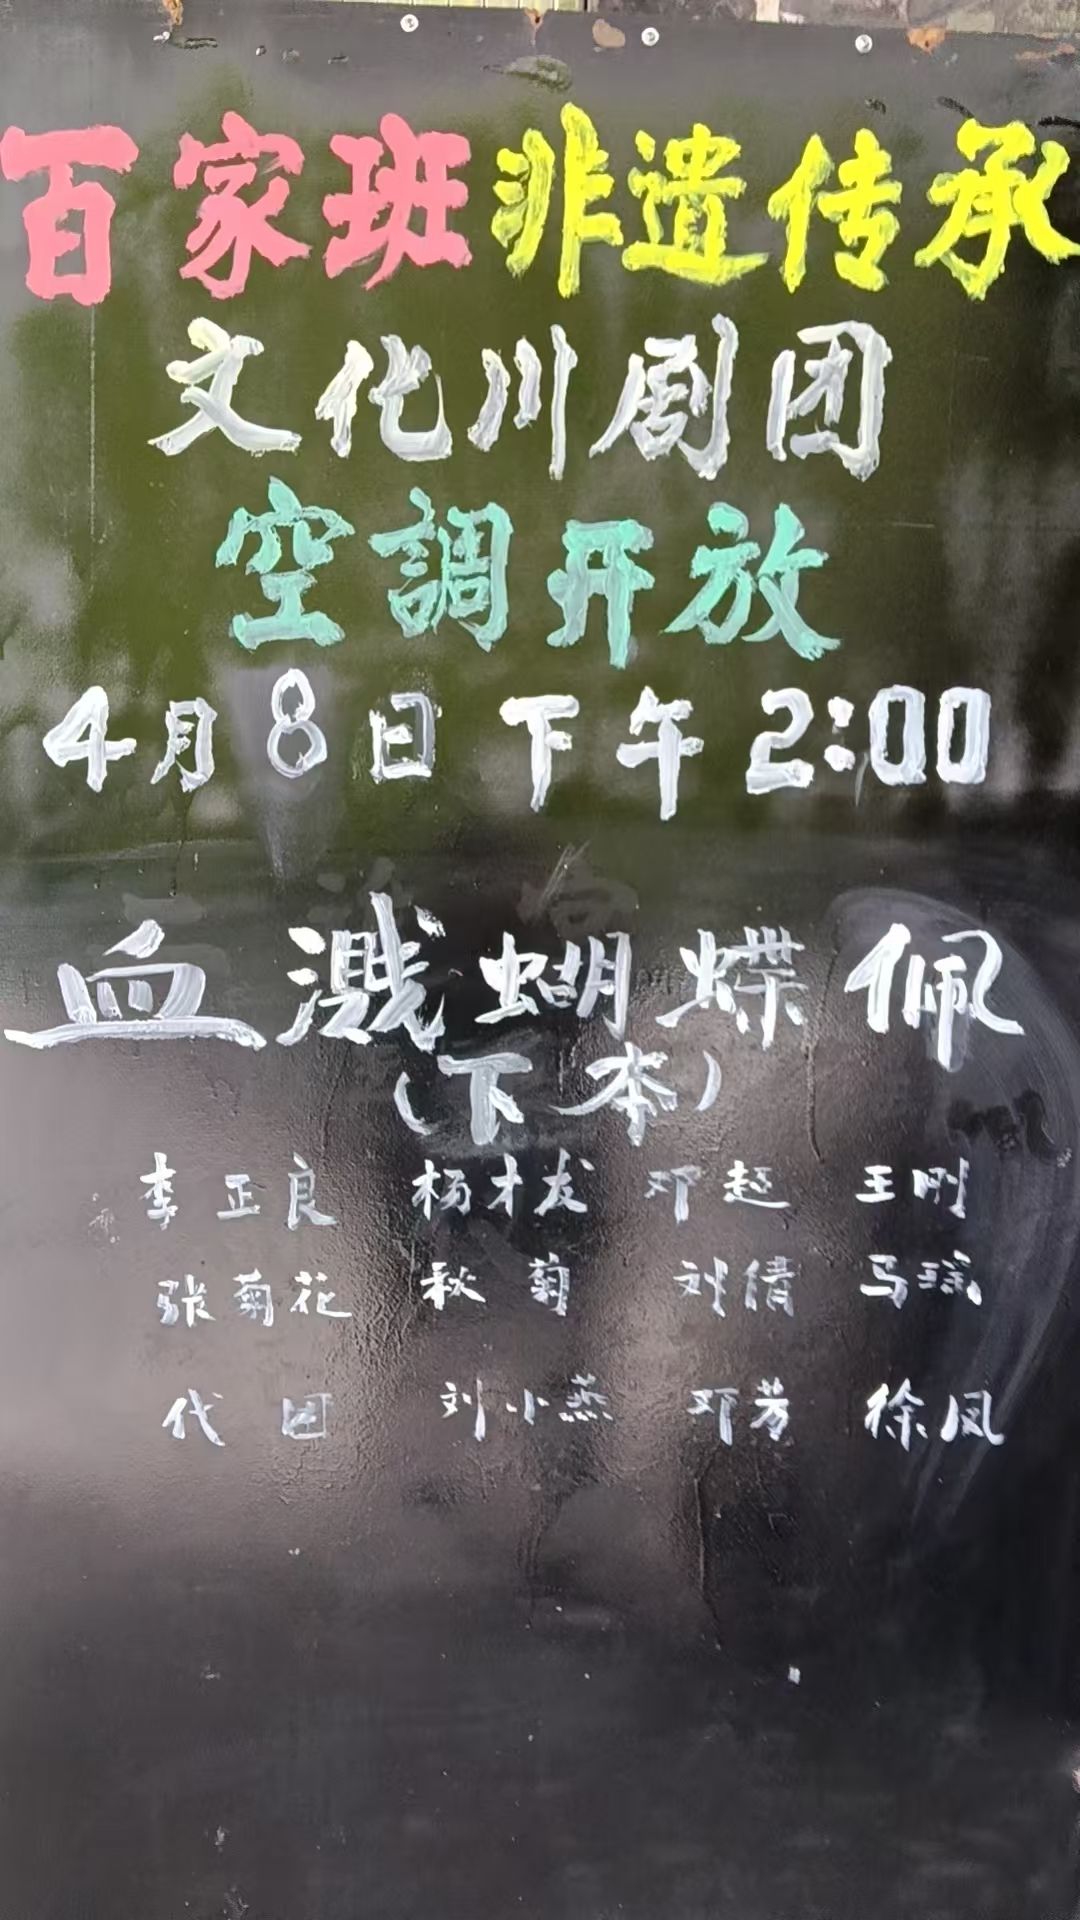 百家班非遗传承
文化川剧团
空調开放
4月8日下午2:00
血溅蝴蝶佩
(下本)
李正良 杨才发 邓超 王刚
张菊花 秋菊 刘倩 马瑶
代团 刘小燕 邓芳 徐凤